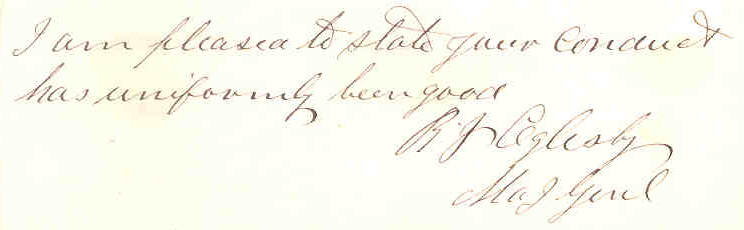 I am pleased to state your conduct
has uniformly been good
R J Oglesby
Maj Genl